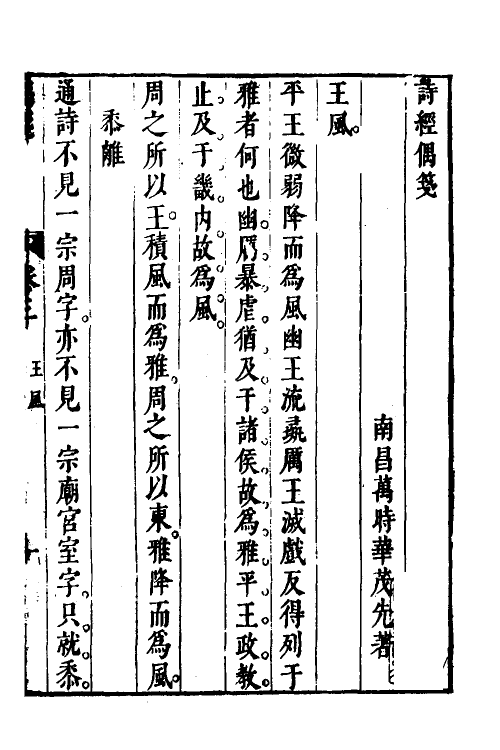 詩經偶箋
南昌萬時華茂先著
王風。
平王微弱降而為風幽王流彘厲王滅戲反得列于
雅者何也幽厲暴虐猶及于諸侯故為雅平王政教
止及于畿内故為風。
周之所以王。積風而為雅。周之所以東。雅降而為風。
黍離
通詩不見一宗周字。亦不見一宗廟宫室字。只就黍。
卷三
王風